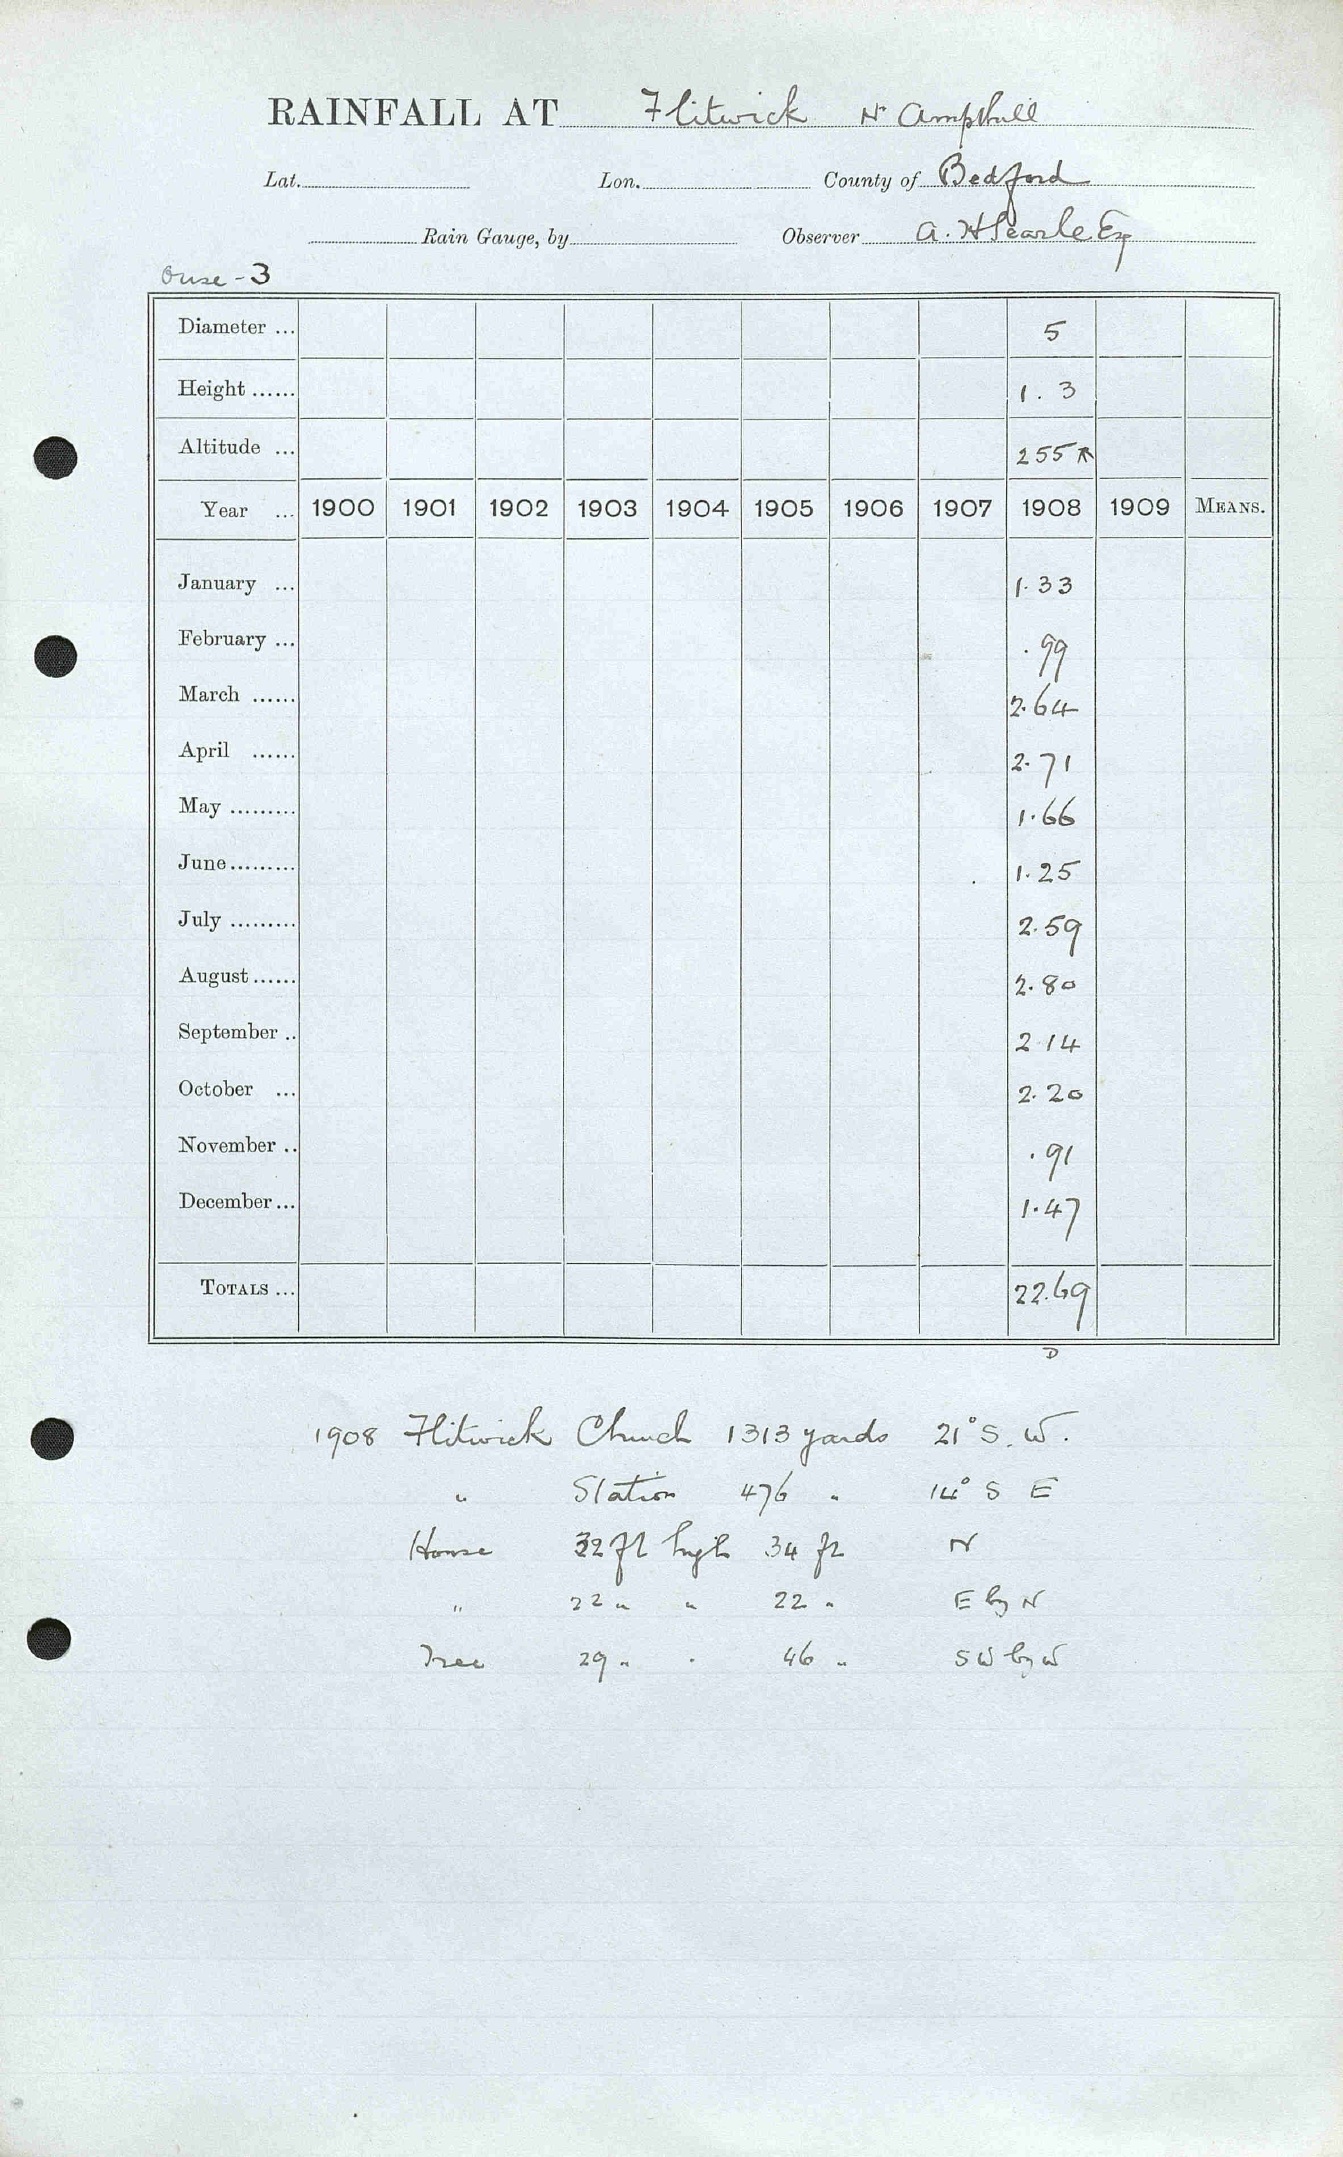 RAINFALL AT Flitwick Nr Ampthill
Lat. Lon. County of Bedford
Rain Gauge, by Observer A. H Searle Esq
Ouse - 3
Diameter ... 5
Height ...... 1. 3
Altitude ... 255
Year ... 1900 1901 1902 1903 1904 1905 1906 1907 1908 1909 MEANS.
January ... 1.33
February ... .99
March ...... 2.64
April ...... 2.71
May ......... 1.66
June ......... 1.25
July ......... 2.59
August ...... 2.80
September .. 2.14
October ... 2.20
November .. .91
December ... 1.47
TOTALS ... 22.69
D
1908 Flitwick Church 1313 yards 21° S. W.
" Station 476 " 14° S E
House 32 ft high 34 ft N
" 22 " " 22 " E by N
Tree 29 " " 46 " SW by W